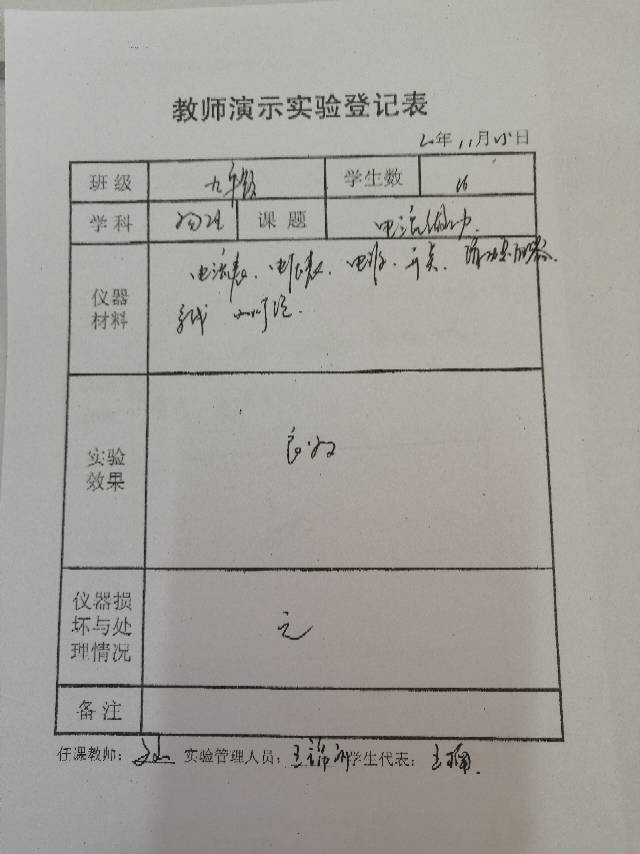 教师演示实验登记表
年11月 日
班级 九年级 学生数 16
学科 物理 课题 电流做功
仪器材料 电流表、电压表、电源、开关、滑动变阻器、
导线 小灯泡.
实验效果 良好
仪器损坏与处理情况 无
备注
任课教师: 实验管理人员:王 学生代表:王